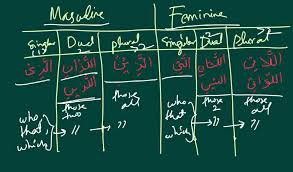 Masculine Feminine
Dual plural Singular Dual plural
الَّذِىْ اللَّذَانِ الَّذِيْنَ الَّتِىْ اللَّتَانِ
اللَّذَيْنِ اللَّتَيْنِ
who those those who those those
that, two all that, 2 all
which → 〃 → 〃 which → 〃 → 〃